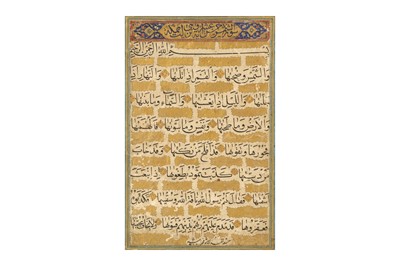 بسم الله الرحمن الرحيم
والشمس وضحيها والقمر اذا تليها والنهار اذا
جليها والليل اذا يغشيها والسماء وما بنيها
والارض وما طحيها ونفس وما سويها فالهمها
فجورها وتقويها قد افلح من زكيها وقد خاب
من دسيها كذبت ثمود بطغويها اذ انبعث
اشقيها فقال لهم رسول الله ناقة الله وسقيها فكذبوه
فعقروها فدمدم عليهم ربهم بذنبهم فسويها